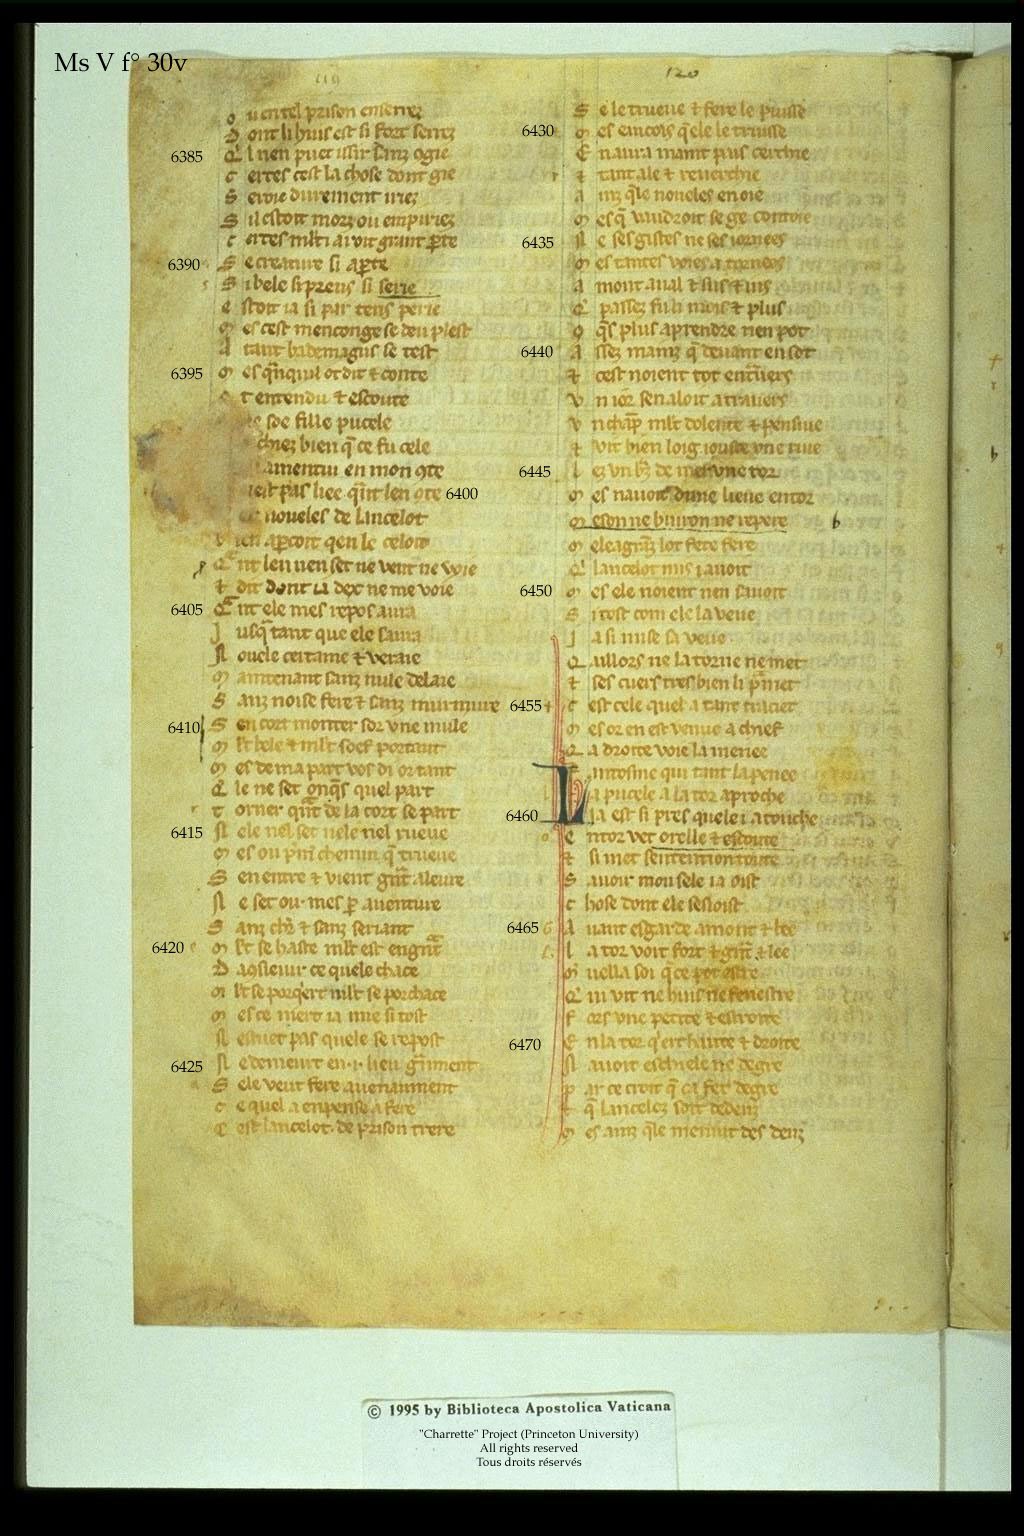 Ms V f° 30v
120
o u en tel prison enserrez
D ont li huis est si fort serrez
6385 Q̓ l nen puet issir sanz ↄgie
c ertes cest la chose dont gie
S eroie durement iriez
S il estoit morz ou empiriez
c ertes mlt i avoit grant ꝑte
6390 S e creature si aperte
S i bele si preus si serie
e stoit ia si par tens perie
m es cest menconge se deu plest
A tant bademagus se test
6395 m es
t entendu ⁊ escoute
soe fille pucele
bien q̄ ce fu cele
amentui en mon ↄte
pas liee 6400
noueles de lancelot
ien apcoit qen le celoit
len uen set ne vent ne voie
⁊ dit dont ia dex ne me voie
6405 ele mes repos aura
J usq̄ tant que ele saura
N ouele certaine ⁊ veraie
m aintenant sanz nule delaie
S anz noise fere ⁊ sanz murmure
6410 S en cort monter sor vne mule
m lt bele ⁊ mlt soef portant
m es de ma part vos di or tant
Q̓ le ne set onq̄s quel part
t orner de la cort se part
6415 N ele nel set nele nel rueue
m es ou chemin q̄ trueue
S en entre ⁊ vient aleure
N e set ou· mes ꝑ auenture
S anz ⁊ sanz seriant
6420 m lt se haste mlt est
D aↄsieuir ce quele chace
m lt se porqert mlt se porchace
m es ce niert ia mie si tost
N estuet pas quele se repost
6425 N e demeurt en ·i· lieu
S ele veut fere auenanment
c e quel a enpense a fere
c est lancelot· de prison trere
S e le trueue ⁊ fere le puisse
6430 m es eincois q̄ ele le truisse
E n aura maint pais cerchie
⁊ tant ale ⁊ reuerchie
A inz qˉle noueles en oie
m es q̄ vaudroit se ge contoie
6435 N e ses gistes ne ses iornees
m es tantes voies a tornees
A mont aual ⁊ sus ⁊ ius
passez fu li mois ⁊ plus
o q̄s plus aprendre nen pot
6440 A ssez mainz q̄ deuant en sot
⁊ cest noient tot
v n ior sen aloit a trauers
v n chāp mlt dolente ⁊ pensiue
⁊ vit bien loig iouste vne riue
6445 l ez vn de mer vne tor
m es nauoit dune lieue entor
m eson ne buiron ne repere b
m eleagāz lot fete fere
Q̓ lancelot mis i auoit
6450 m es ele noient nen sauoit
S i tost com ele la veue
J a si mise sa veue
Q aillors ne la torne ne met
⁊ ses cuers tres bien li pˉmet
6455 c est cele quel a tant
m es or en est venue a chief
Q a droite voie la menee
qui tant la penee
L a pucele a la tor aproche
6460 la est si pres quele i a touche
E ntor vet orelle ⁊ escoute
⁊ si met sentention toute
S auoir mon sele ia oist
c hose dont ele sesioist
6465 A uant esgarde amont ⁊ bee
l a tor voit fort ⁊ ⁊ lee
m uella soi q̄ ce pot estre
Q̓ ni vit ne huis ne fenestre
f ors vne petite ⁊ estroite
6470 E n la tor qert haute ⁊ droite
N auoit eschiele ne degre
p ar ce croit q̄ ca fet degre
⁊ q̄ lancelez soit dedenz
m es ainz qˉle meniut des denz
© 1995 by Biblioteca Apostolica Vaticana
"Charrette" Project (Princeton University)
All rights reserved
Tous droits réservés